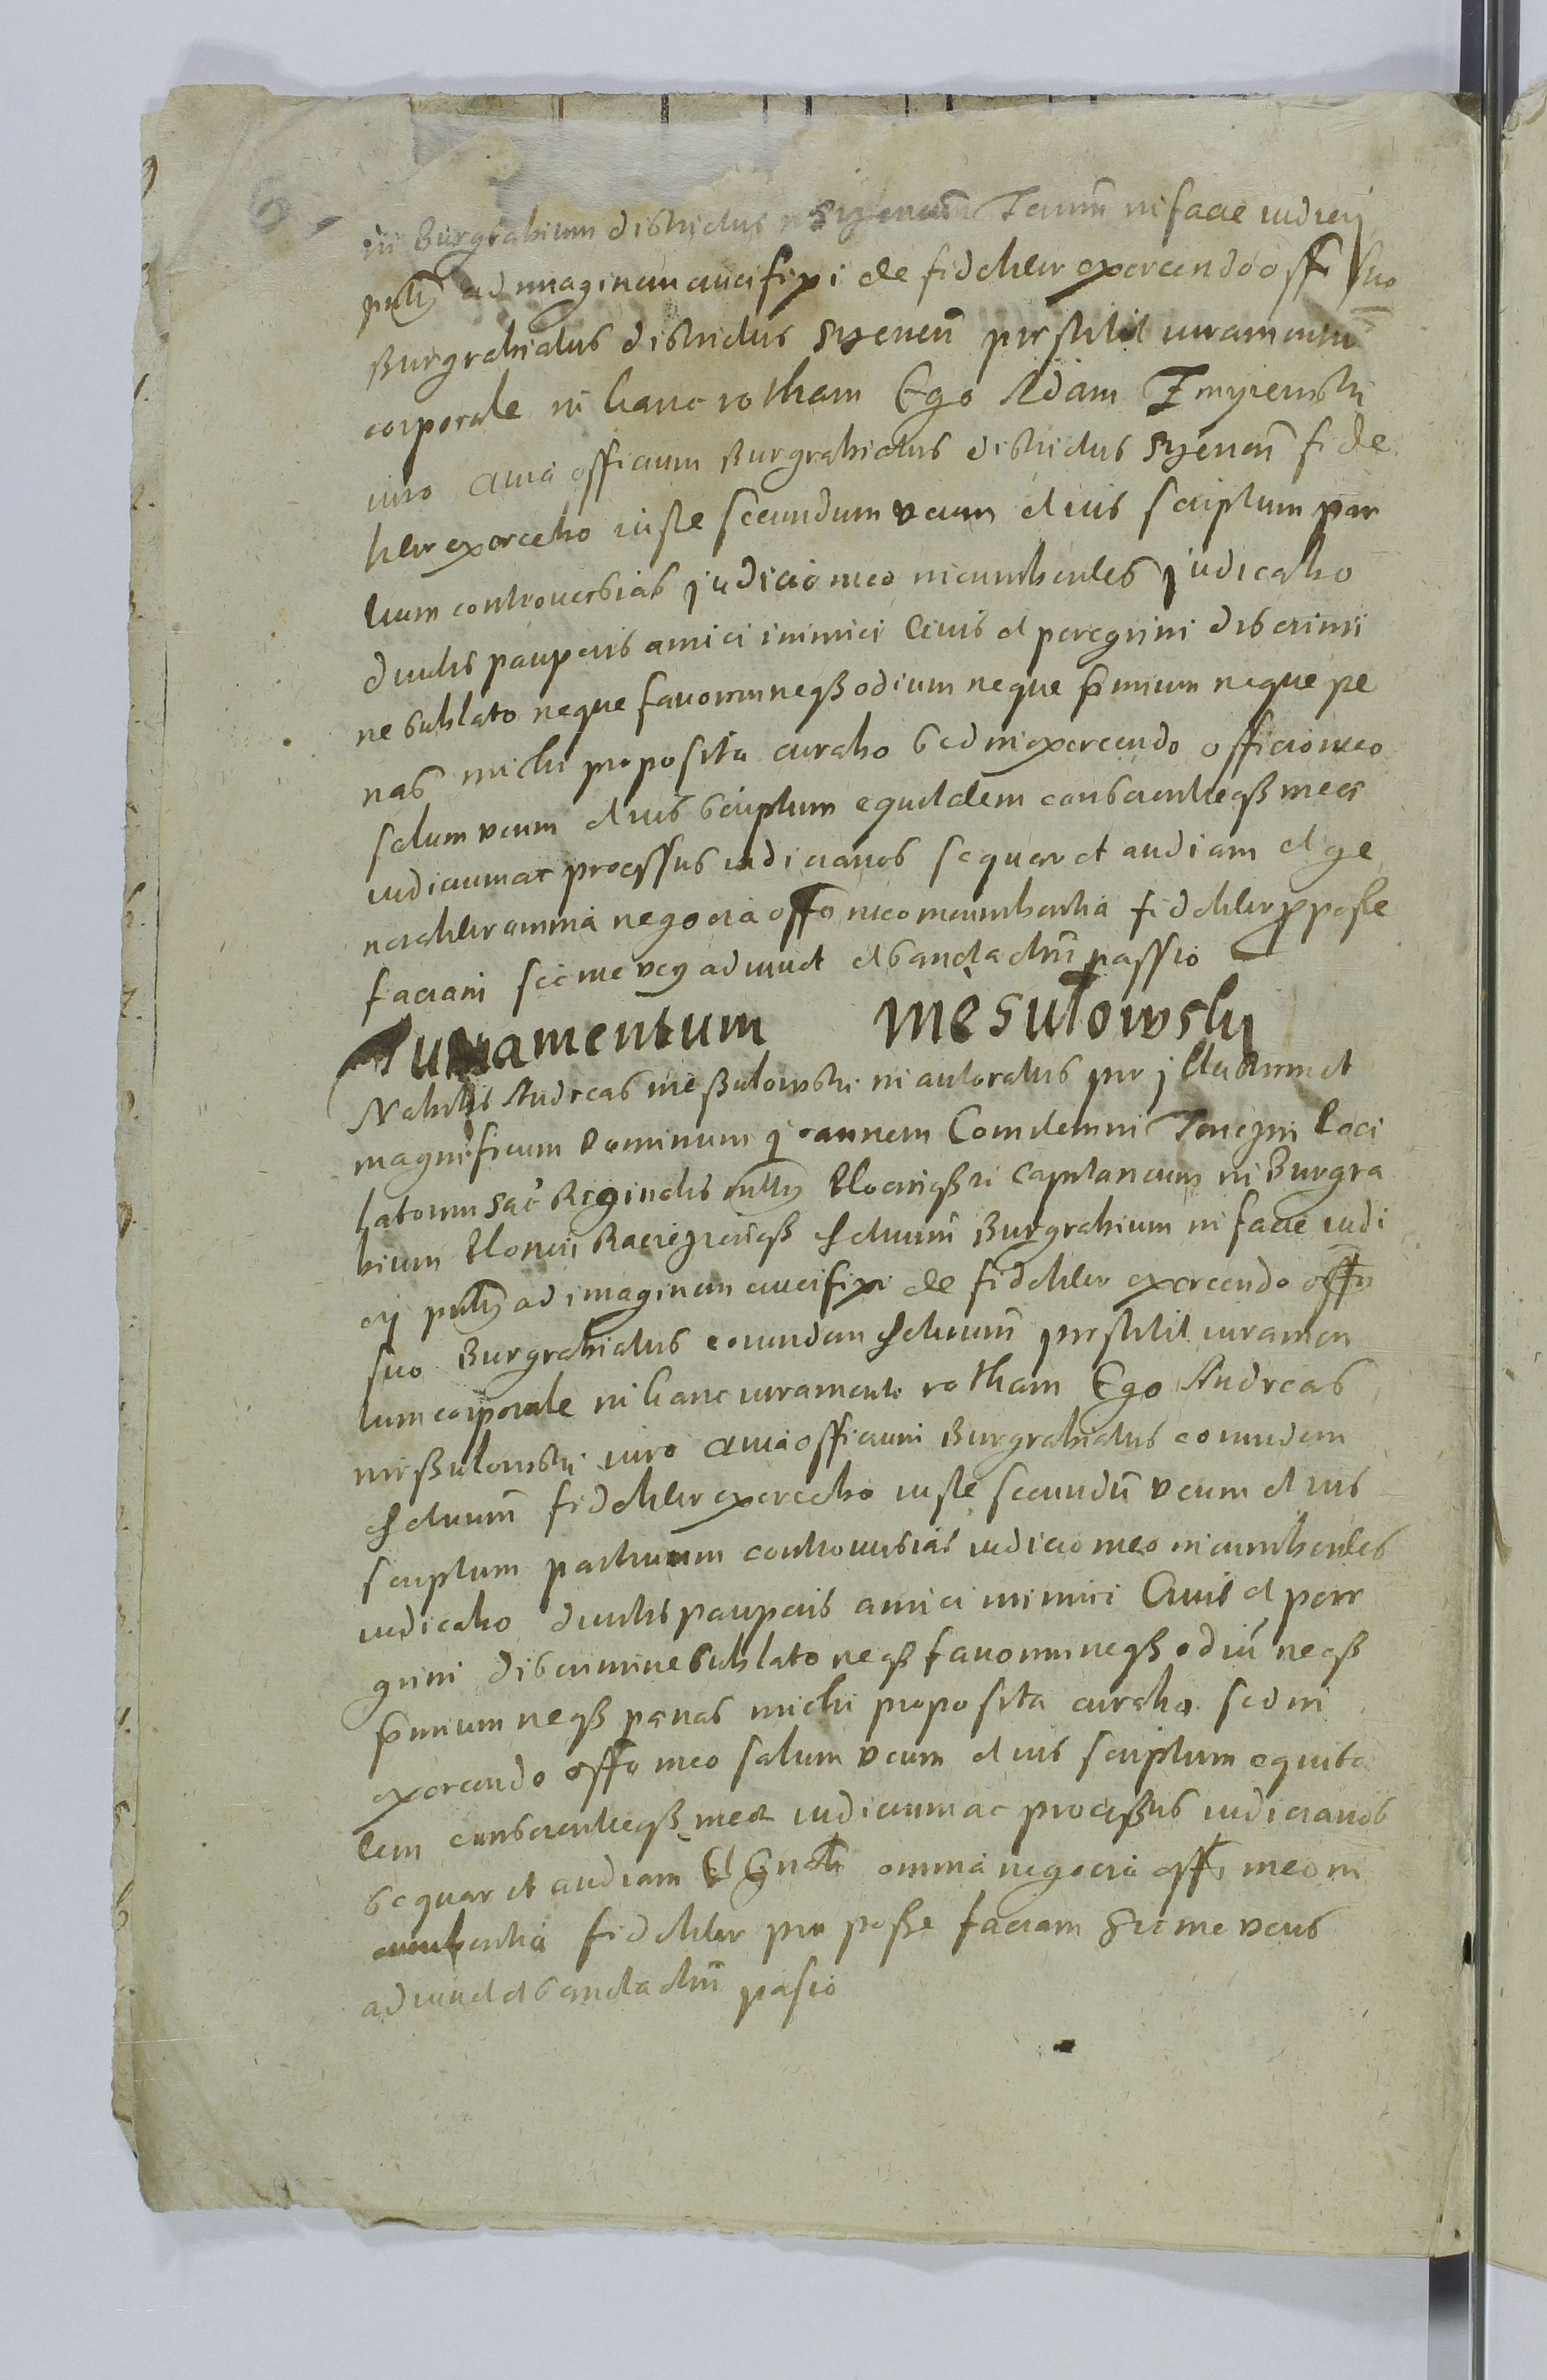 6
in Burgrabium districtus Syenen Terrm in facie iudicij
pntis ad imaginem crucifixi de fideliter exercendo offo suo
Burgrabiatus districtus Syenen prestitit iuramentu
corporale in hanc rotham Ego Adam
iuro quia officium Burgrabiatus districtus Syenen fide
liter exercebo iuste secundum Deum et ius scriptum par
tium controuersias judicio meo incumbentes judicabo
diuitis pauperis amici inimici Ciuis et peregrini discrimi
ne sublato neque fauorem neqß odium neque pmium neque pe
nas michi proposita curabo sed in exercendo officio meo
solum Deum et ius scriptum equitatem conscientieqß mees
iudicium ac processus iudiciarios sequar et audiam et ge
neraliter omnia negocia offo meo incumbentia fideliter pposse
faciam sic me Deus adiuuet et sancta chri passio
Iuramentum mesutowsky
Nobilis Andreas meßutowski in autoratus per jllustrem et
magnificum Dominum joannem Comitem in Tenczin Loci
natorum Sac Reginalis mttis capitaneum in Burgra
bium facie iudi
cij pntis ad imaginem crucifixi de fideliter exercendo offo
suo Burgrabiatus eorundem prestitit iuramen
tum corporale in hanc iuramenti rotham Ego Andreas
meßutowski iuro quia officium Burgrabiatus eorundem
fideliter exercebo iuste secundu Deum et ius
scriptum partium controuersias iudicio meo incumbentes
iudicabo diuitis pauperis amici inimici Ciuis et pere
grini discrimine sublato neqß fauorem neqß odiu neqß
pmium neqß penas michi proposita curabo sed in
exercendo offo meo solum Deum et ius scriptum equita
tem conscientieqß mee iudicium ac proceßus iudiciarios
sequar et audiam Et gnalr omnia negocia offo meo in
cumbentia fideliter pro poße faciam Sic me Deus
adiuuet et sancta chri pasio